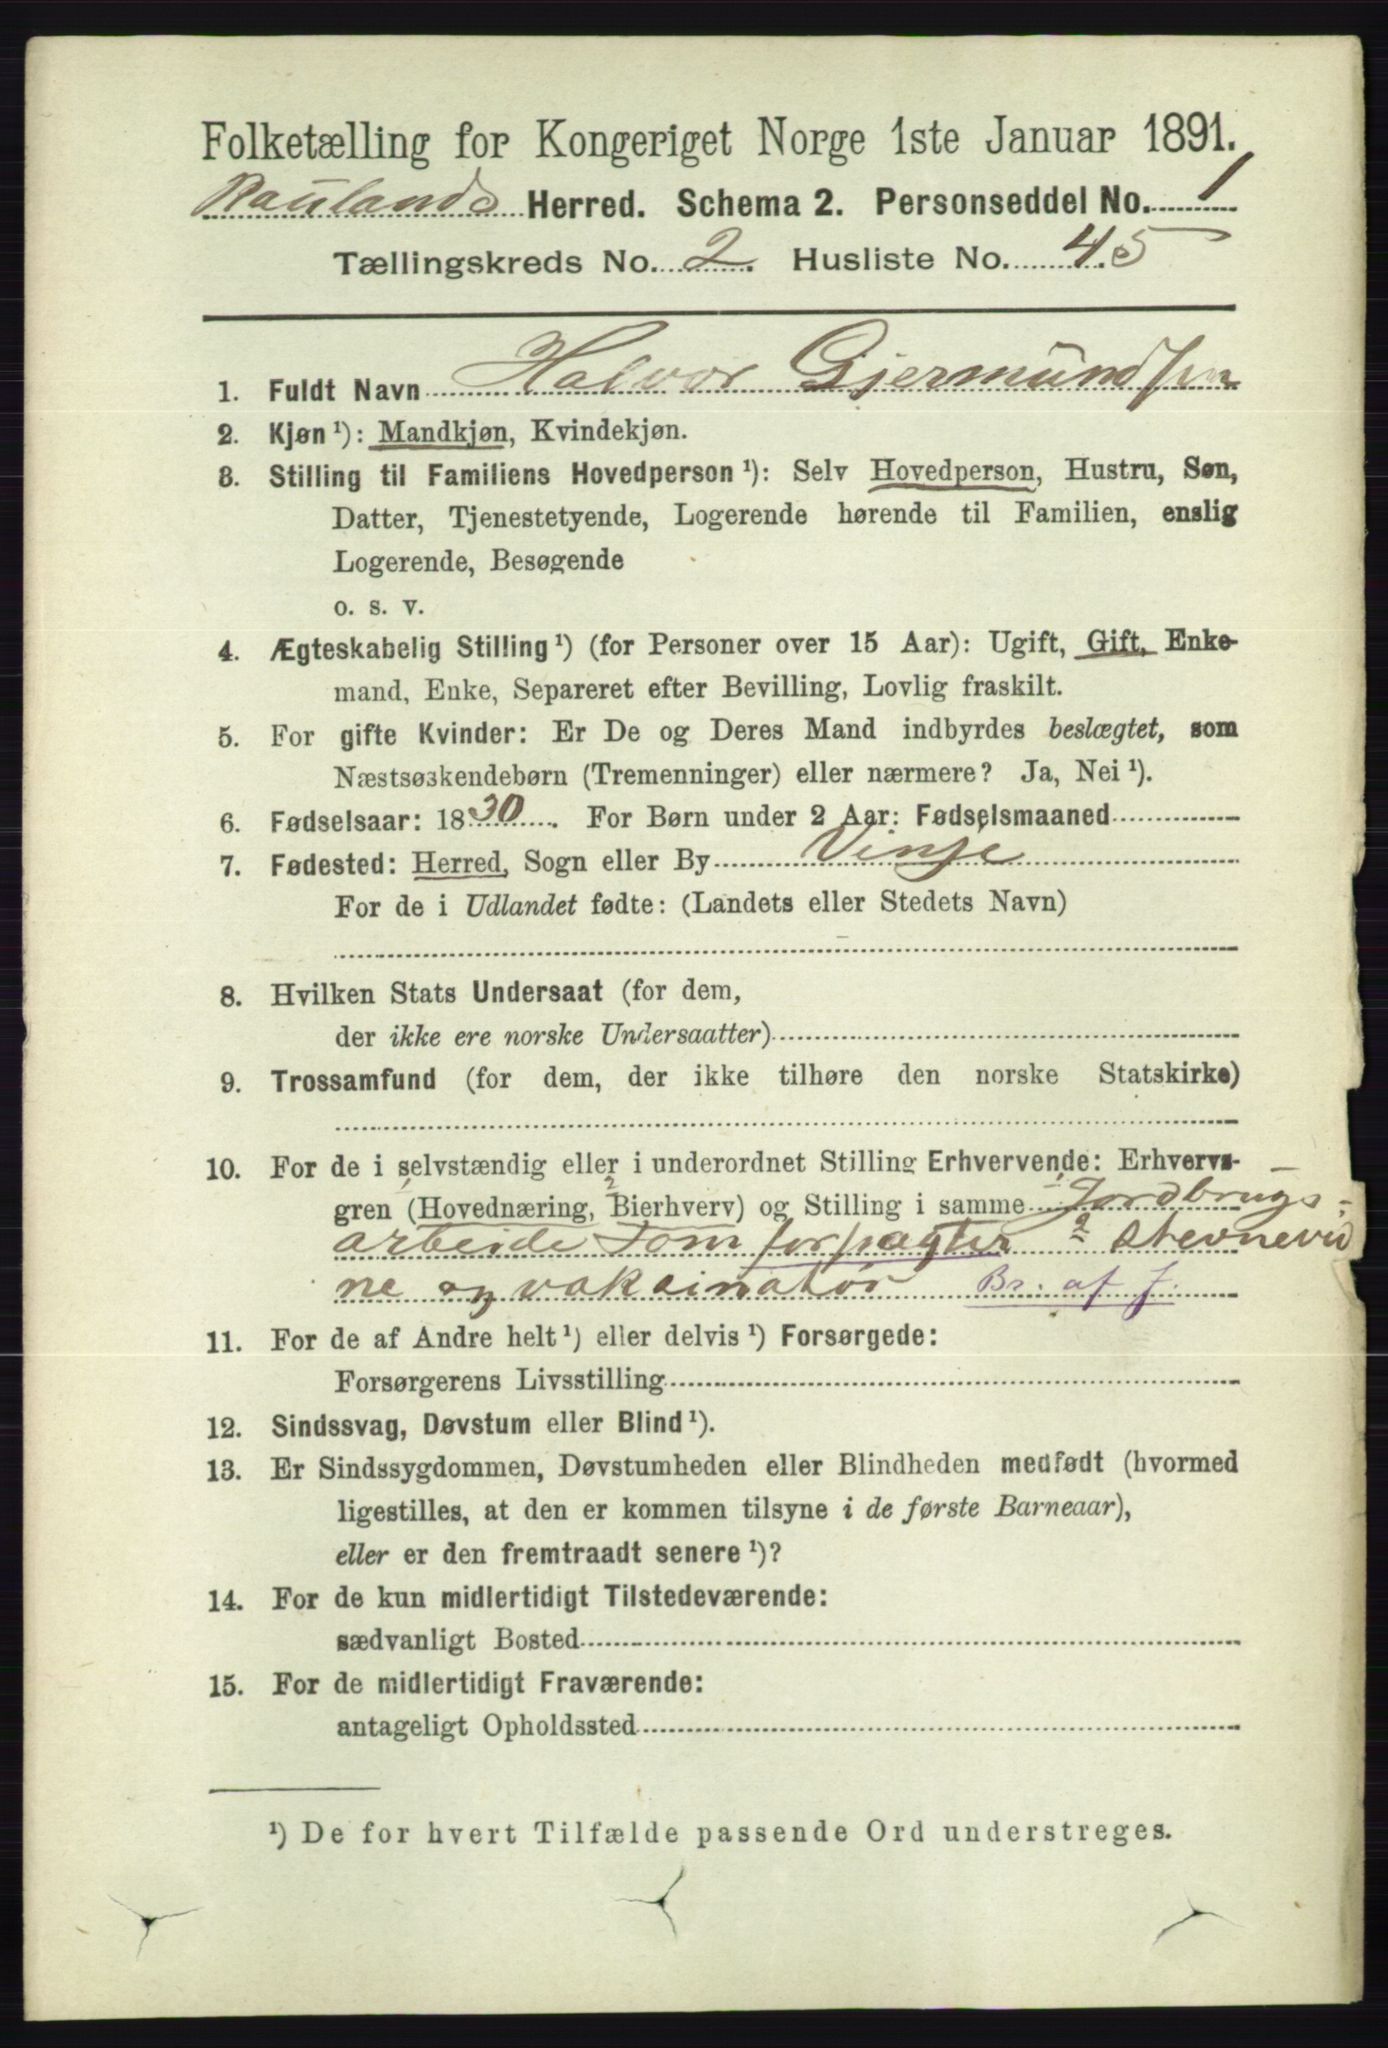 Folketælling for Kongeriget Norge 1ste Januar 1891.
Raulands Herred. Schema 2. Personseddel No. 1
Tællingskreds No. 2. Husliste No. 45
1. Fuldt Navn Halvor Gjermundsen
2. Kjøn ¹): Mandkjøn, Kvindekjøn.
3. Stilling til Familiens Hovedperson ¹): Selv Hovedperson, Hustru, Søn,
Datter, Tjenestetyende, Logerende hørende til Familien, enslig
Logerende, Besøgende
o. s. v.
4. Ægteskabelig Stilling ¹) (for Personer over 15 Aar): Ugift, Gift, Enke-
mand, Enke, Separeret efter Bevilling, Lovlig fraskilt.
5. For gifte Kvinder: Er De og Deres Mand indbyrdes beslægtet, som
Næstsøskendebørn (Tremenninger) eller nærmere? Ja, Nei ¹).
6. Fødselsaar: 1830. For Børn under 2 Aar: Fødselsmaaned
7. Fødested: Herred, Sogn eller By Vinje
For de i Udlandet fødte: (Landets eller Stedets Navn)
8. Hvilken Stats Undersaat (for dem,
der ikke ere norske Undersaatter)
9. Trossamfund (for dem, der ikke tilhøre den norske Statskirke)
10. For de i selvstændig eller i underordnet Stilling Erhvervende: Erhvervs-
gren (Hovednæring, 2 Bierhverv) og Stilling i samme Jordbrugs-
arbeide som forpagter 2 stevnevid
ne og vaksinatør Br. af J.
11. For de af Andre helt ¹) eller delvis ¹) Forsørgede:
Forsørgerens Livsstilling
12. Sindssvag, Døvstum eller Blind ¹).
13. Er Sindssygdommen, Døvstumheden eller Blindheden medfødt (hvormed
ligestilles, at den er kommen tilsyne i de første Barneaar),
eller er den fremtraadt senere ¹)?
14. For de kun midlertidigt Tilstedeværende:
sædvanligt Bosted
15. For de midlertidigt Fraværende:
antageligt Opholdssted
¹) De for hvert Tilfælde passende Ord understreges.